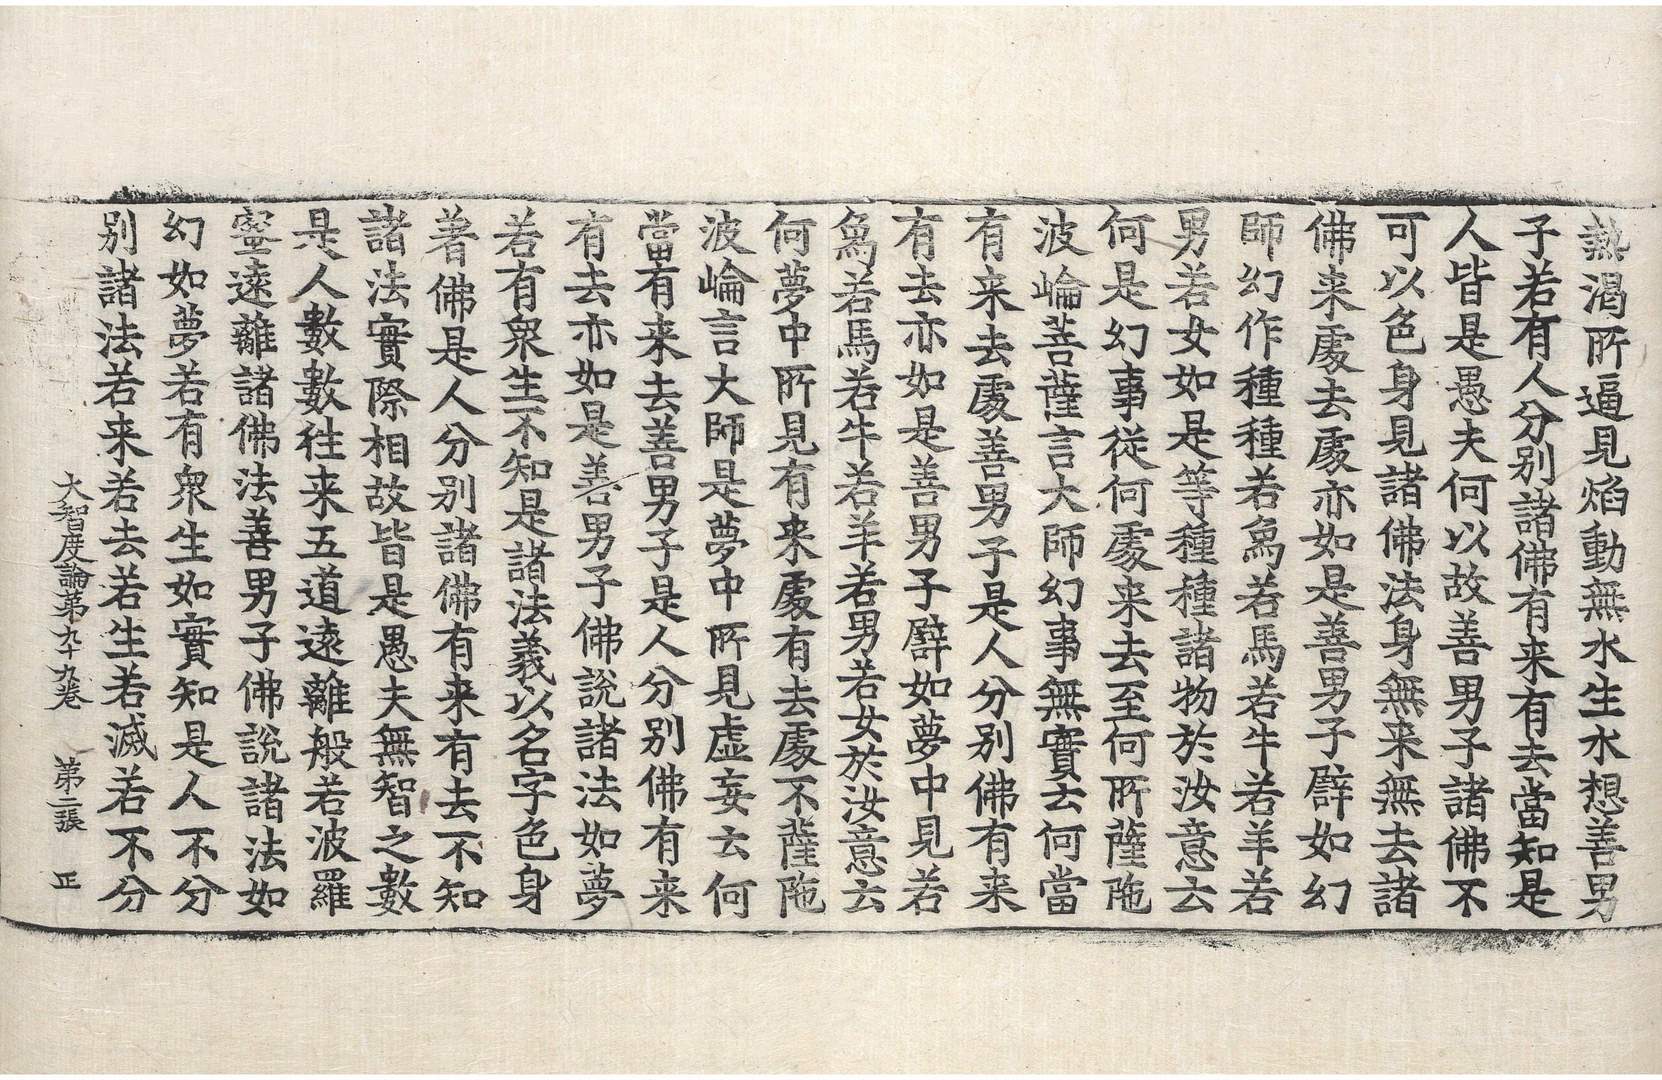 熱渴所逼見焰動無水生水想善男
子若有人分別諸佛有来有去當知是
人皆是愚夫何以故善男子諸佛不
可以色身見諸佛法身無来無去諸
佛来處去處亦如是善男子譬如幻
師幻作種種若象若馬若牛若羊若
男若女如是等種種諸物於汝意云
何是幻事從何處来去至何所薩陁
波崘菩薩言大師幻事無實云何當
有来去處善男子是人分別佛有来
有去亦如是善男子譬如夢中見若
象若馬若牛若羊若男若女於汝意云
何夢中所見有来處有去處不薩陁
波崘言大師是夢中所見虛妄云何
當有来去善男子是人分別佛有来
有去亦如是善男子佛說諸法如夢
若有衆生不知是諸法義以名字色身
著佛是人分別諸佛有来有去不知
諸法實際相故皆是愚夫無智之數
是人數數往来五道遠離般若波羅
蜜遠離諸佛法善男子佛說諸法如
幻如夢若有衆生如實知是人不分
別諸法若来若去若生若滅若不分
大智度論第九十九卷 第二張 正